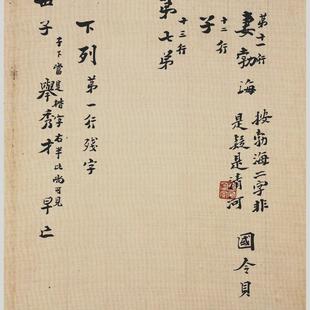 第十一行
妻勃海
按勃海二字非
是疑是清河
國令
十二行
子
十三行
第七弟
下列 第一行殘字
子
子下當是字
右半比尚可見
舉秀才
早亡